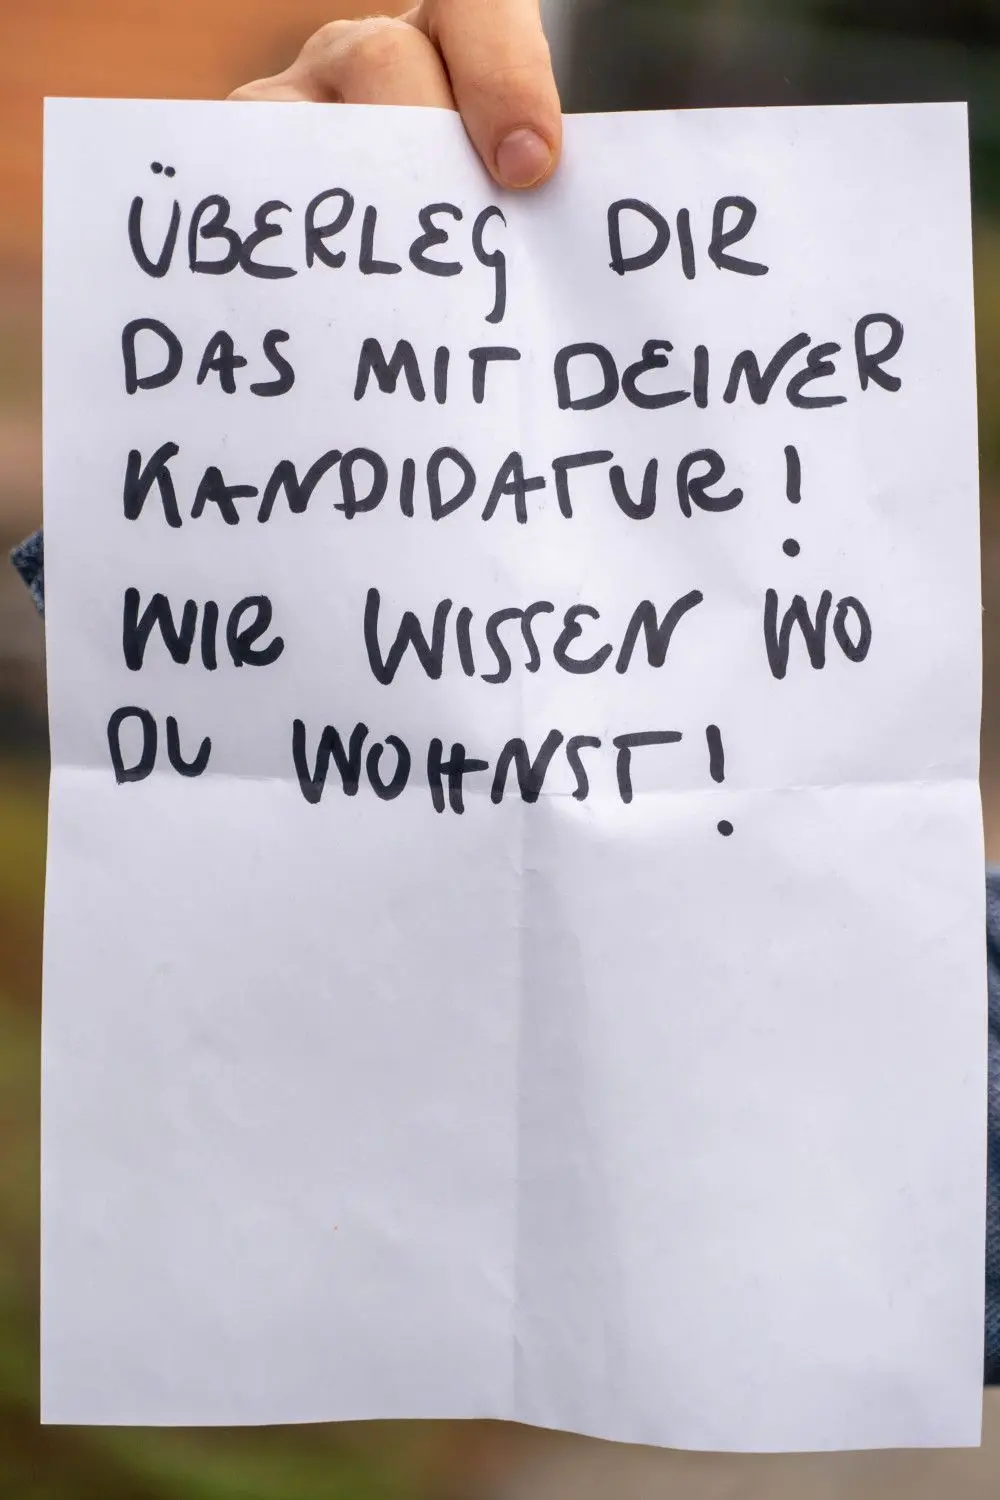 ÜBERLEG DIR
DAS MIT DEINER
KANDIDATUR!
WIR WISSEN WO
DU WOHNST!